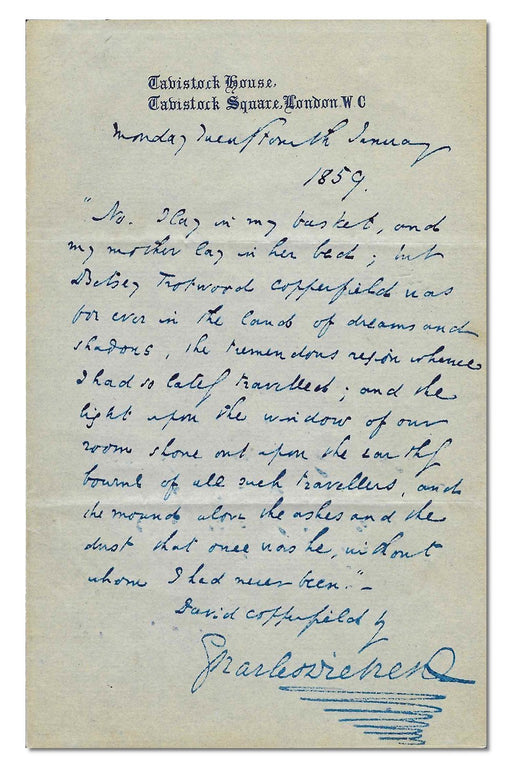 Tavistock House,
Tavistock Square, London W C
Monday Twenty Fourth January
1859.
"No. I lay in my basket, and
my mother lay in her bed; but
Betsey Trotwood Copperfield was
for ever in the land of dreams and
shadows, the tremendous region whence
I had so lately travelled; and the
light upon the window of our
room shone out upon the earthly
bourne of all such travellers, and
the mound above the ashes and the
dust that once was he, without
whom I had never been."–
David Copperfield by
Charles Dickens